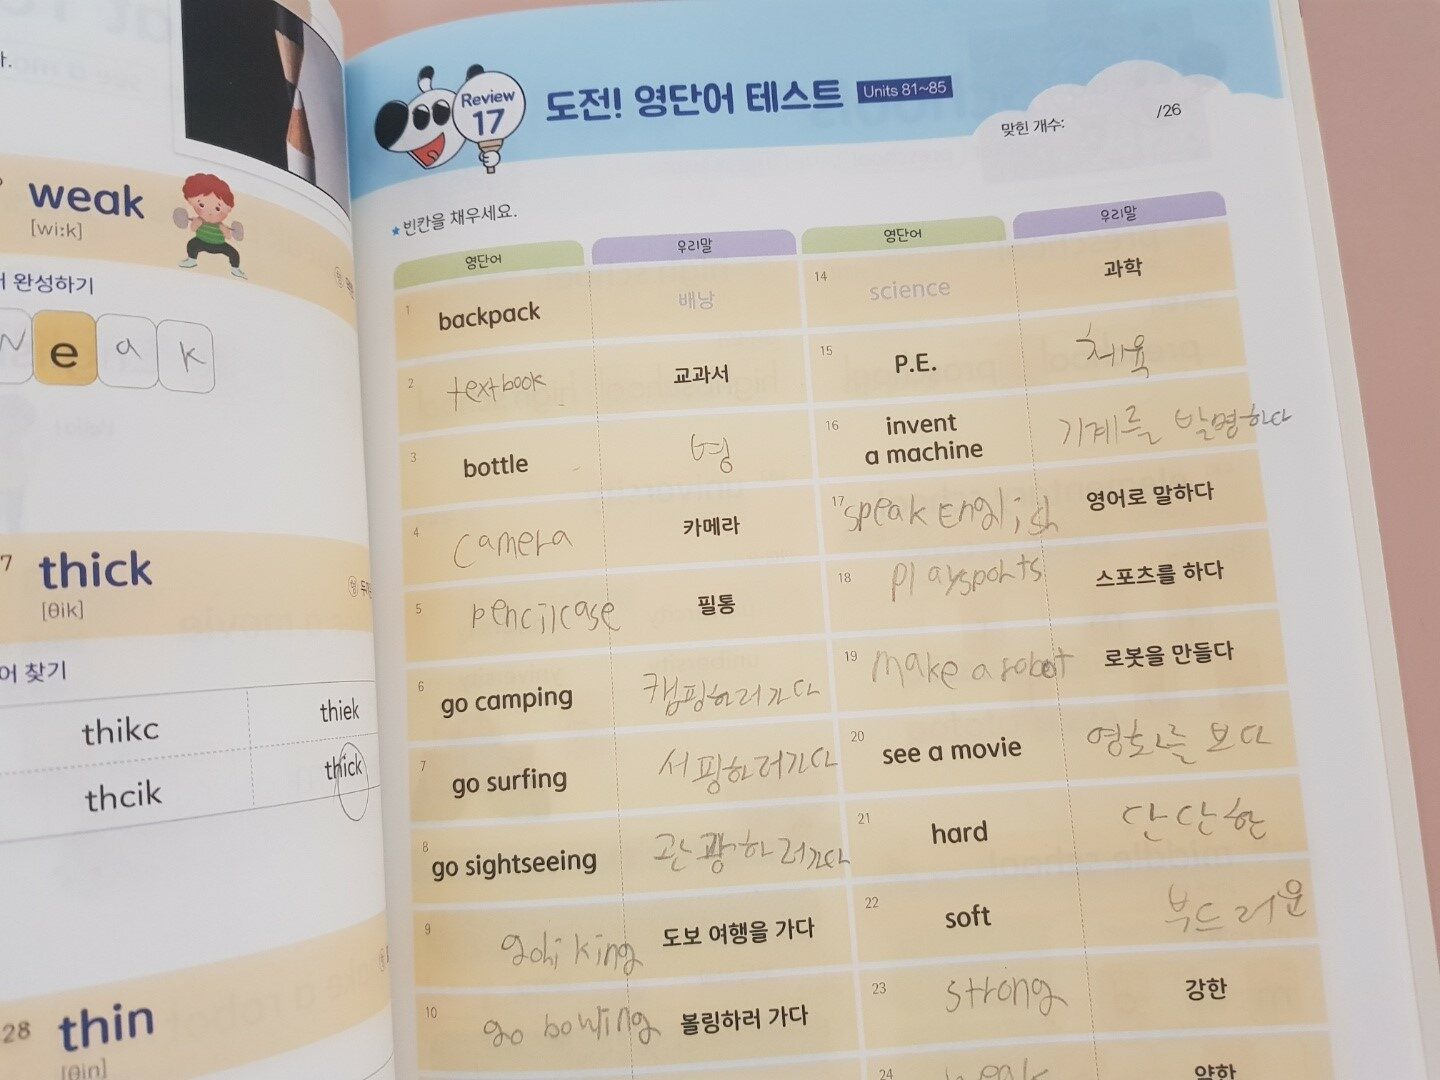 weak
[wi:k]
완성하기
e a k
7 thick
[θik]
어 찾기
thikc thiek
thcik thick
28 thin
[θin]
Review
17
도전! 영단어 테스트 Units 81~85
맞힌 개수: /26
★빈칸을 채우세요.
영단어 우리말 영단어 우리말
1 backpack 배낭
2 textbook 교과서
3 bottle 병
4 camera 카메라
5 pencilcase 필통
6 go camping 캠핑하러가다
7 go surfing 서핑하러가다
8 go sightseeing 관광하러가다
9 gohiking 도보 여행을 가다
10 go bowling 볼링하러 가다
14 science 과학
15 P.E. 체육
16 invent
a machine 기계를 발명하다
17 speak English 영어로 말하다
18 playsports 스포츠를 하다
19 make a robot 로봇을 만들다
20 see a movie 영화를 보다
21 hard 단단한
22 soft 부드러운
23 strong 강한
24 weak 약한